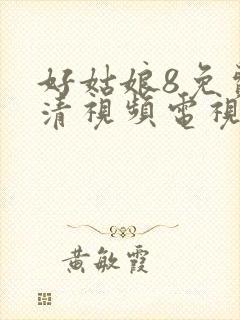 好姑娘8免
清視頻電視
黃敏霞